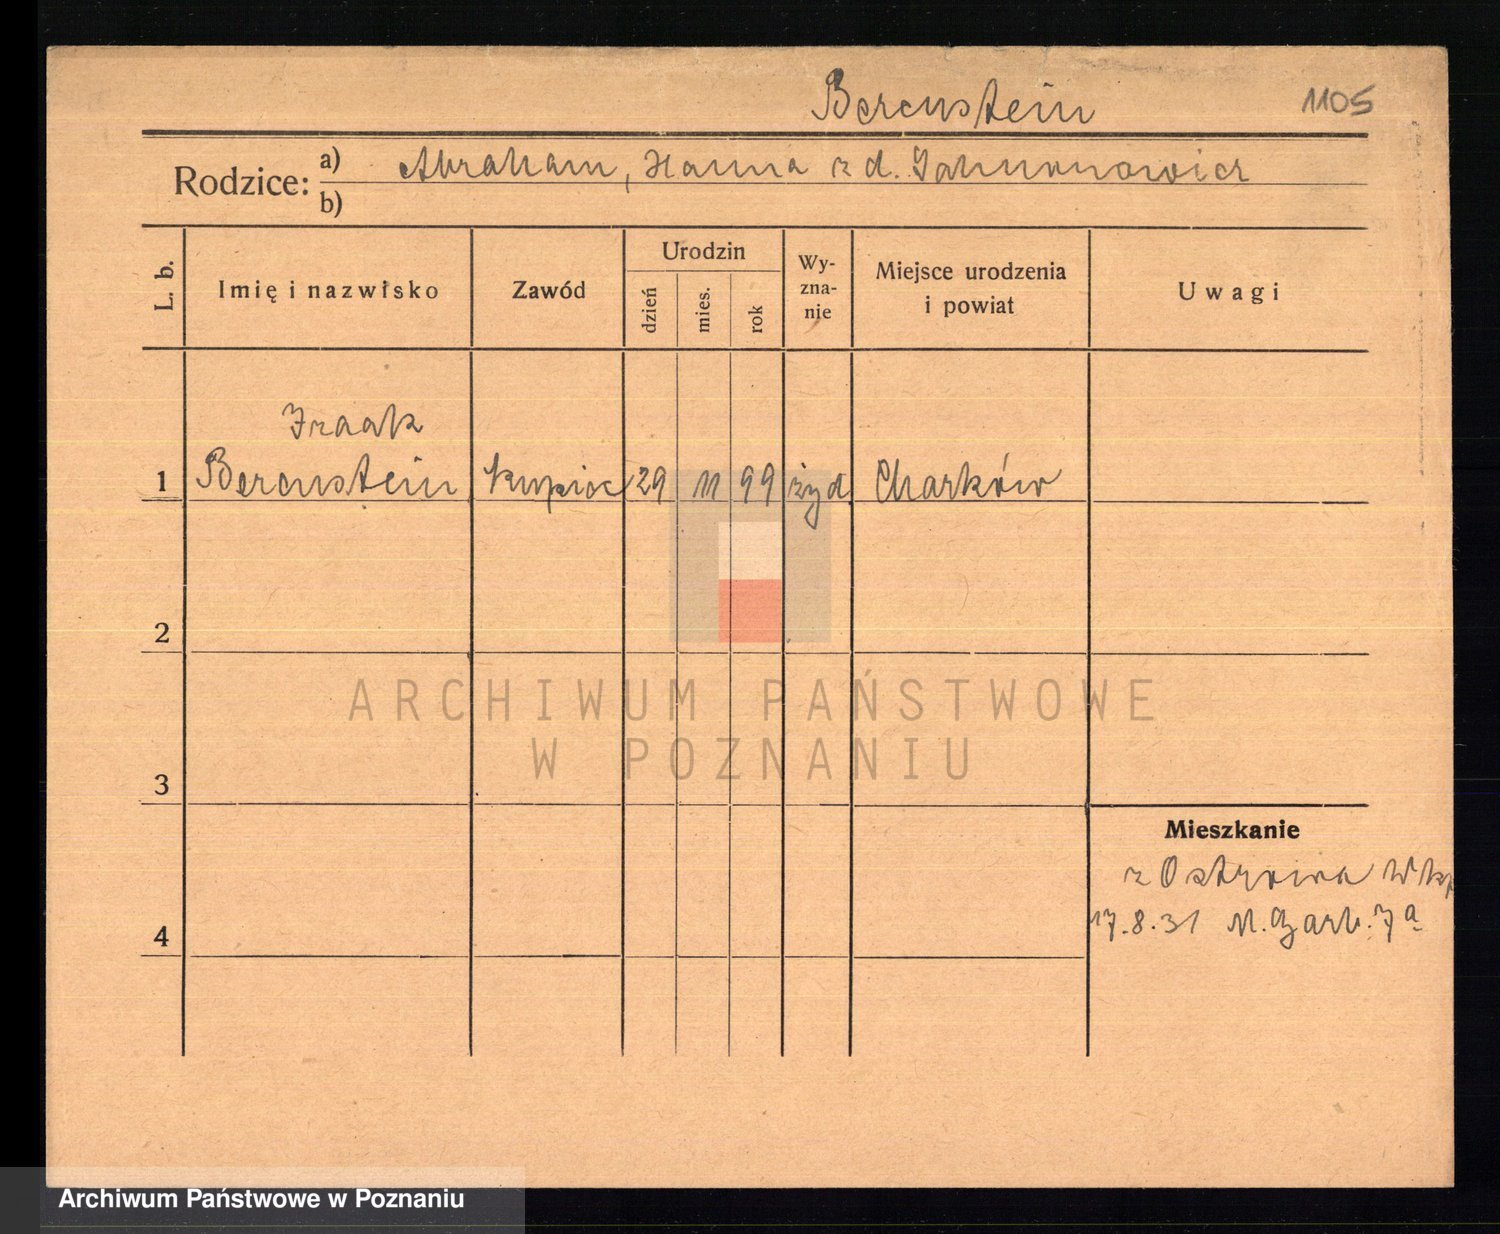 Berenstein 1105
Rodzice: a) Abraham, Hanna z d.
b)
L. b. Imię i nazwisko Zawód Urodzin dzień mies. rok Wy-zna-nie Miejsce urodzenia i powiat Uwagi
Izaak
1 Berenstein kupiec 29 11 99 żyd Charków
2
ARCHIWUM PAŃSTWOWE
W POZNANIU
3
Mieszkanie
z Ostrowa Wlkp
4 17.8.31 M. Garb. 7a
Archiwum Państwowe w Poznaniu